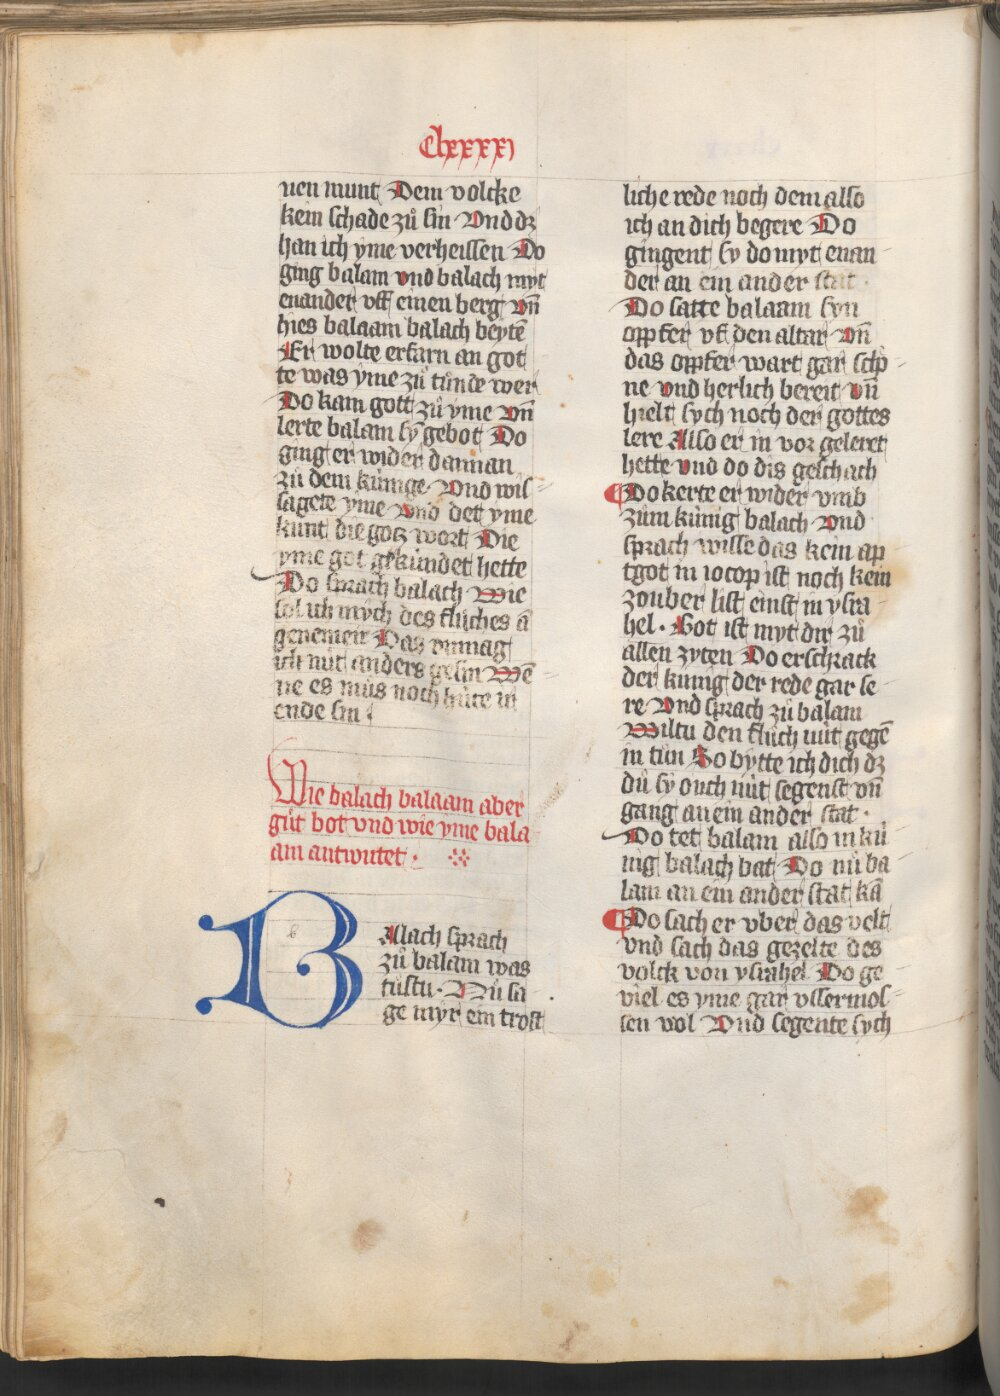 Clxxxxj
nen munt Dem volcke
kein schade zů sin Vnd dz
han ich yme verheissen Do
ging balam vnd balach myt
enander vff einen berg vn̄
hies balaam balach beytē
Er wolte erfarn an got
te was yme zů tůnde wer
Do kam gott zů yme vn̄
lerte balam sy̆ gebot Do
ging er wider dannan
zů dem kúnige Vnd wis-
sagete yme Vnd det yme
kunt die gotz wort Die
yme got gekúndet hette
Do sprach balach Wie
sol ich mych des flůches a̅
genemen Das enmag
ich nút anders gesin Wē
ne es můs noch húte in
ende sin
Wie balach balaam aber
gůt bot vnd wie yme bala
am antwurtet ·
BAlach sprach
zů balam was
tůstu · Nů sa-
ge myr ein trost
liche rede noch dem also
ich an dich begere Do
gingent sy do myt enan-
der an ein ander stat ·
Do satte balaam syn
opfer vf den altar vn̄
das opfer wart gar schó-
ne vnd herlich bereit vn̄
hielt sych noch der gottes
lere Also er in vor geleret
hette vnd do dis geschach
Do kerte er wider vmb
zům kúnig balach vnd
sprach wisse das kein ap
tgot in iocop ist noch kein
zouber list einst in ysra-
hel · Got ist myt dir zů
allen zyten Do erschrack
der kunig der rede gar se-
re Vnd sprach zů balam
Wiltu den flůch nút gegē
in tůn So bytte ich dich dz
dů sy ouch nút segenst vn̄
gang an ein ander stat ·
Do tet balam also in kú-
nig balach bat Do nů ba-
lam an ein ander stat kā
Do sach er vber das velt
vnd sach das gezelte des
volck von ysrahel Do ge-
viel es yme gar vssermos-
sen wol Vnd segente sych